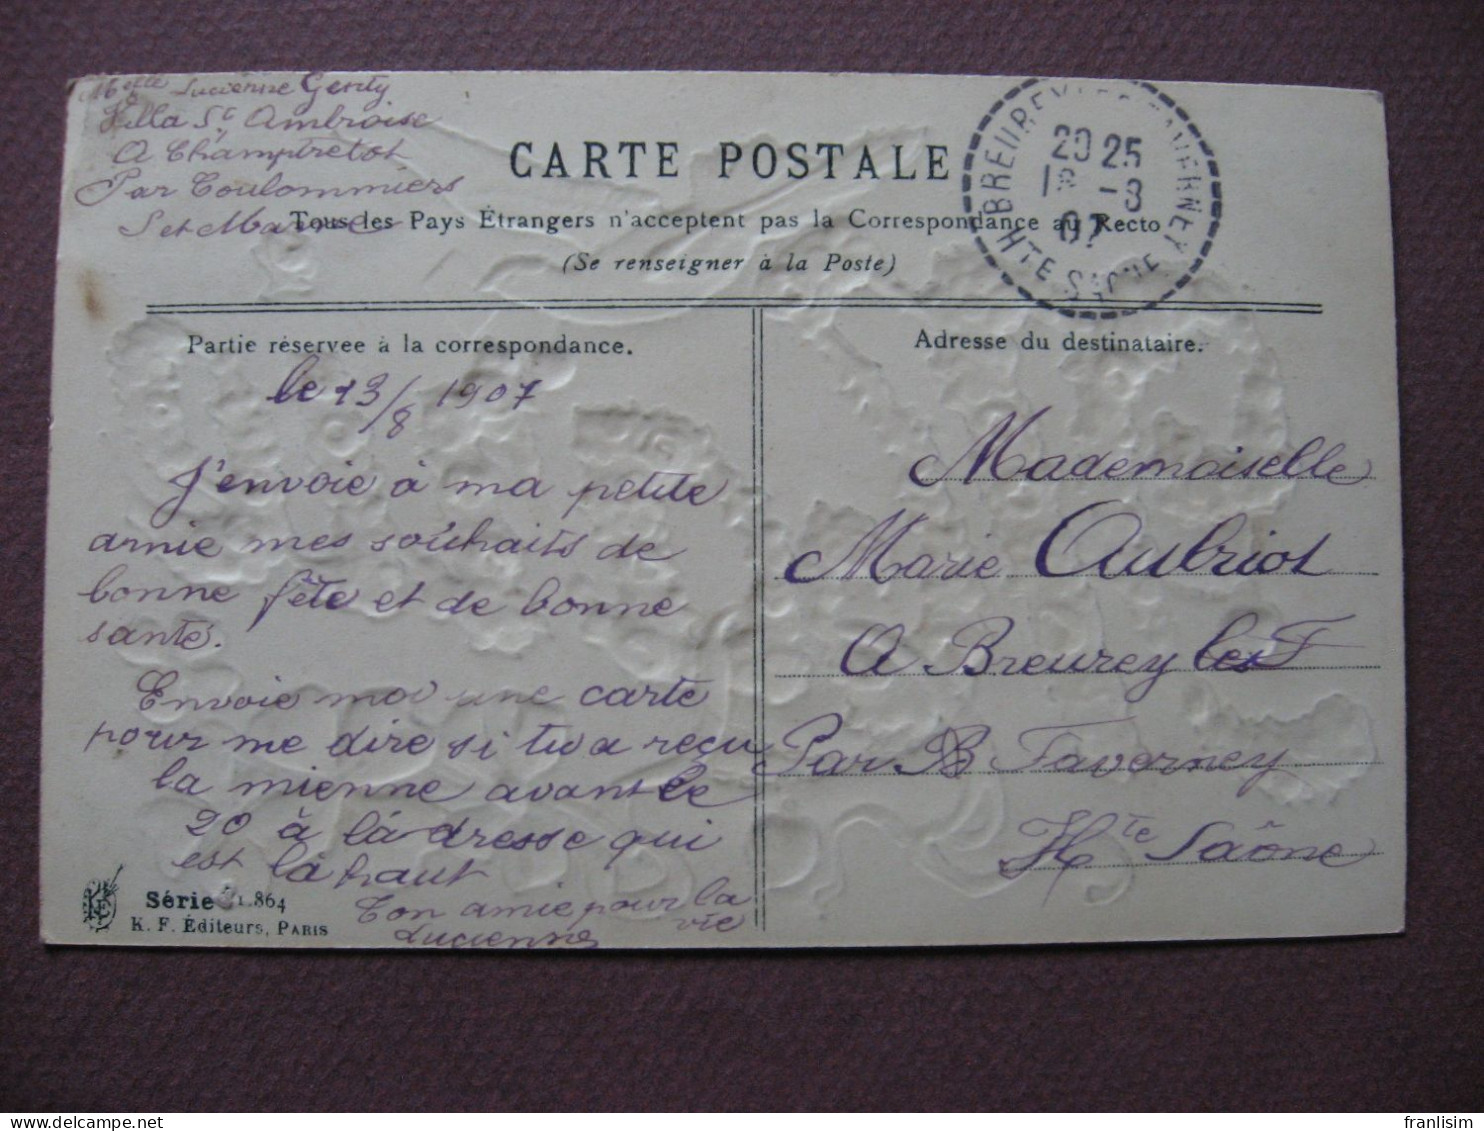 Melle Lucienne Genty
Villa St Ambroise
A Champbretot
Par Coulommiers
S et Marne
CARTE POSTALE
Tous les Pays Étrangers n'acceptent pas la Correspondance au Recto
(Se renseigner à la Poste)
BREUREY LES FAVERNEY
20 25
1 -8
07
HTE SAÔNE
Partie réservée à la correspondance.
le 13/8 1907
J'envoie à ma petite
amie mes souhaits de
bonne fête et de bonne
santés.
Envoie moi une carte
pour me dire si tu a reçu
la mienne avant le
20 à la dresse qui
est là haut
Ton amie pour la
vie
Lucienne
Série 864
K. F. Éditeurs, PARIS
Adresse du destinataire.
Mademoiselle
Marie Aubriot
A Breurey les F
Par B Faverney
Hte Saône
franlisim